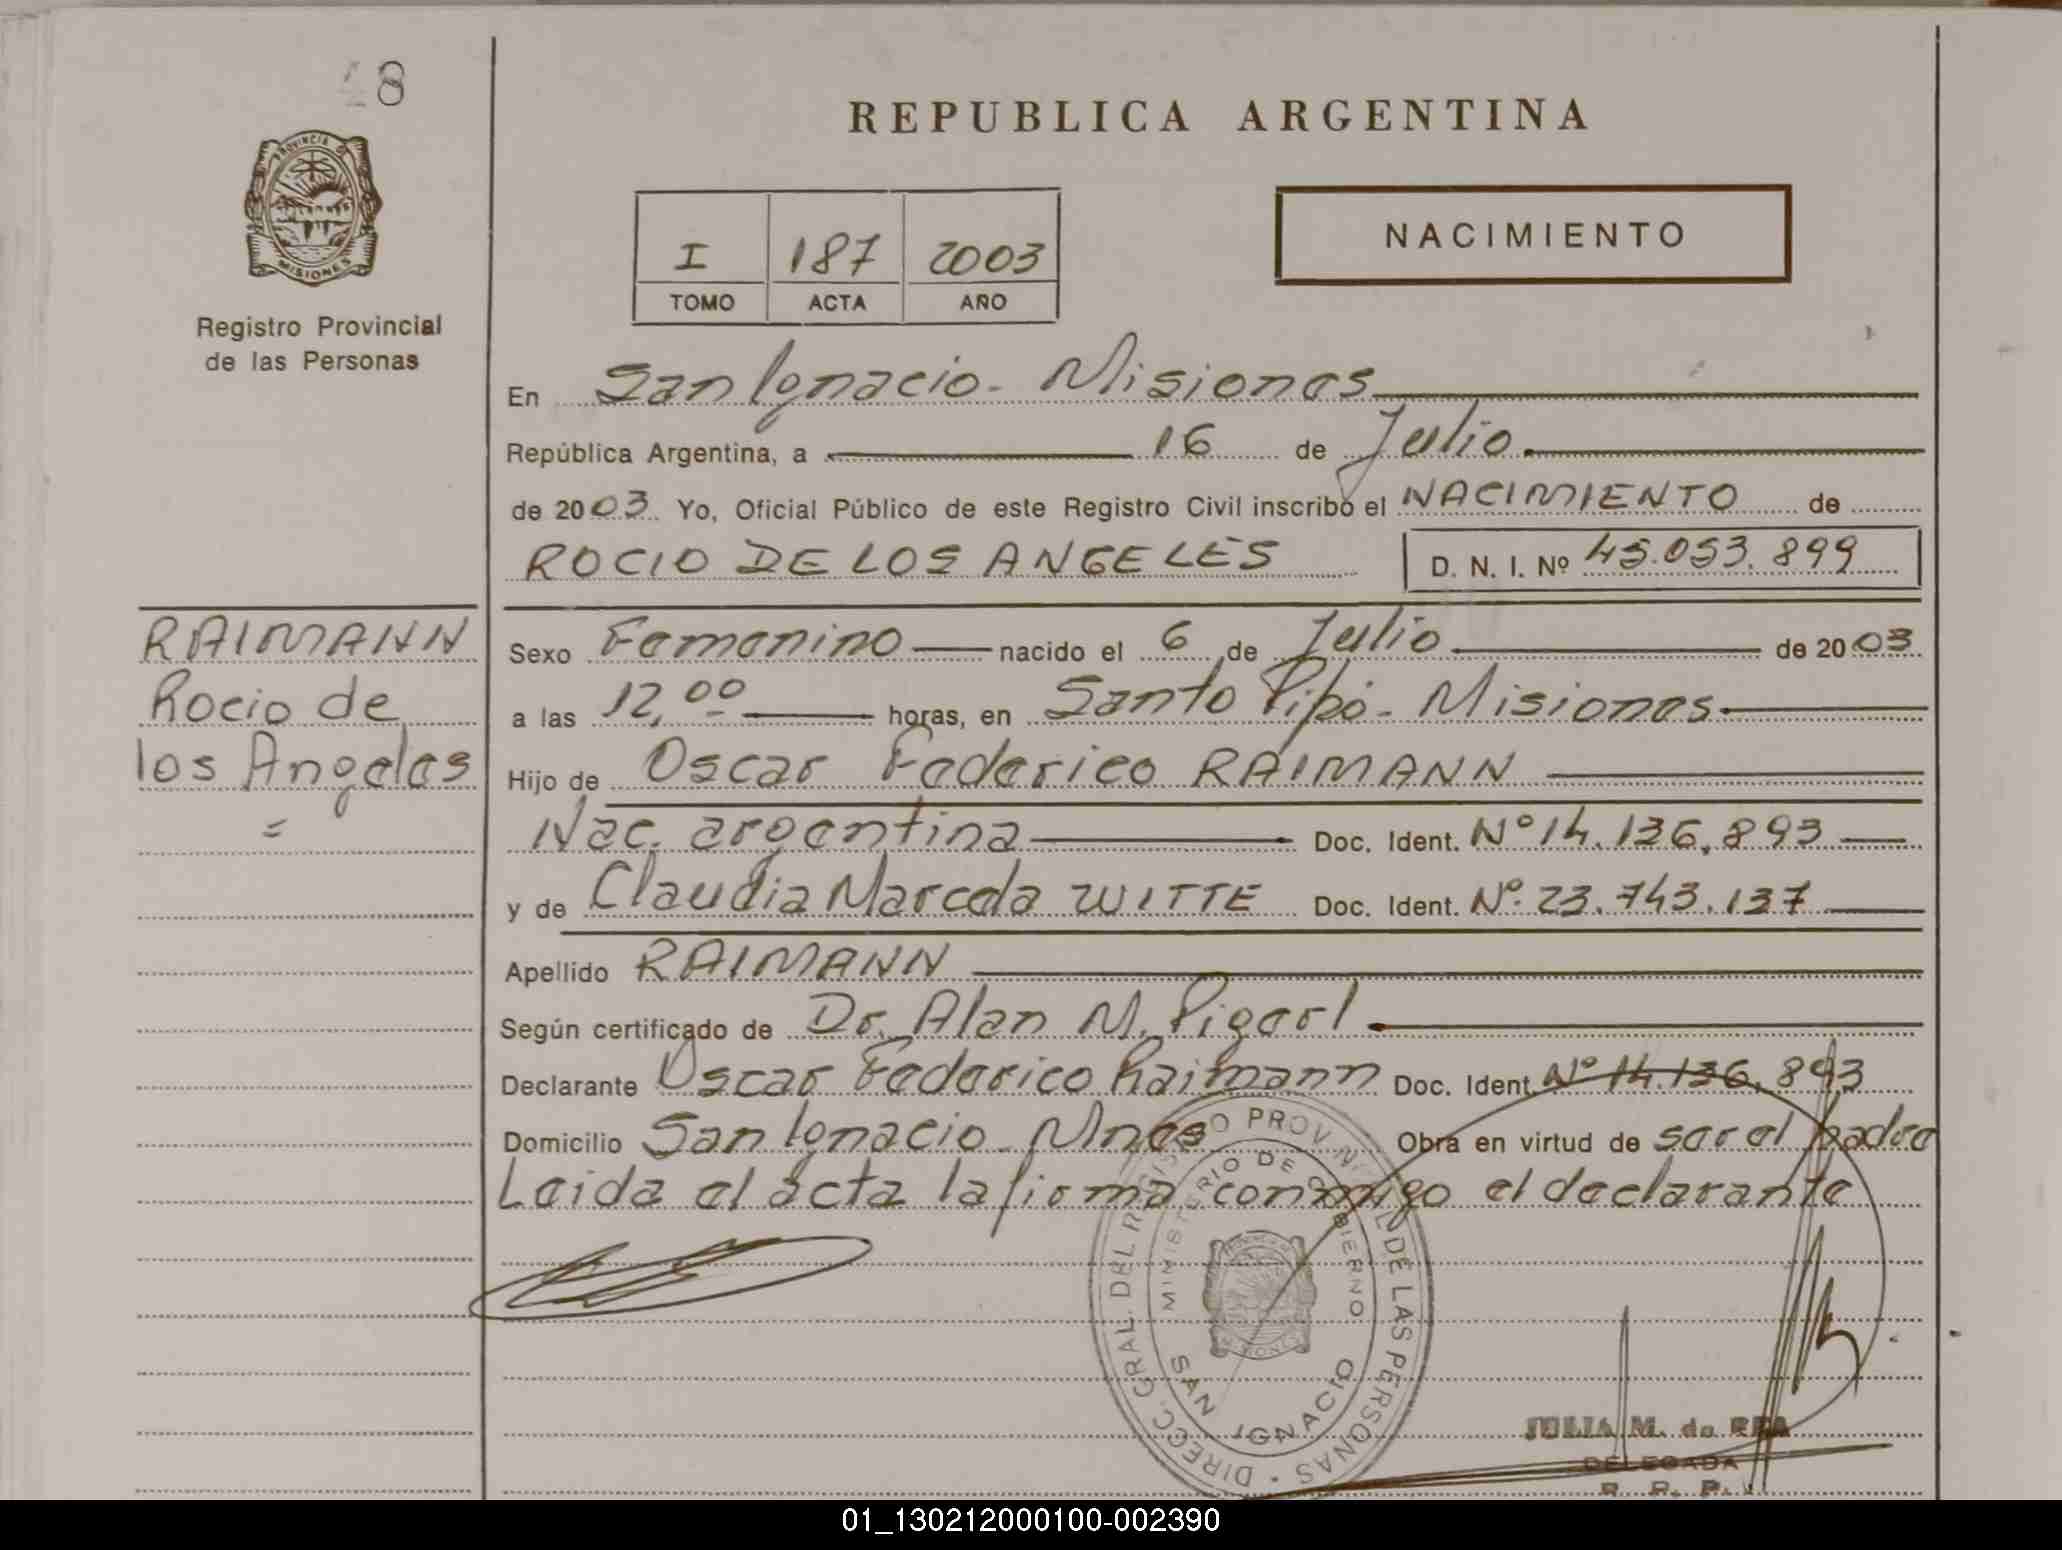 48
REPUBLICA ARGENTINA
PROVINCIA DE
MISIONES
Registro Provincial
de las Personas
I 187 2003
TOMO ACTA AÑO
NACIMIENTO
En San Ignacio - Misiones
República Argentina, a 16 de Julio
de 2003. Yo, Oficial Público de este Registro Civil inscribo el NACIMIENTO de
ROCIO DE LOS ANGELES D. N. I. Nº 45.053.899
RAIMANN
Rocio de
los Angeles
=
Sexo Femenino nacido el 6 de Julio de 2003
a las 12,00 horas, en Santo Pipó - Misiones
Hijo de Oscar Federico RAIMANN
Nac. argentina Doc. Ident. Nº 14.136.893
y de Claudia Marcela WITTE Doc. Ident. Nº 23.743.137
Apellido RAIMANN
Según certificado de Dr. Alan M.
Declarante Oscar Federico Raimann Doc. Ident. Nº 14.136.893
Domicilio San Ignacio - Mnes Obra en virtud de ser el padre
Leida el acta la firma conmigo el declarante
DIRECC. GRAL. DEL REGISTRO PROVINCIAL DE LAS PERSONAS
MINISTERIO DE GOBIERNO
SAN IGNACIO
JULIA M. de REA
DELEGADA
R. R. P.
01_130212000100-002390